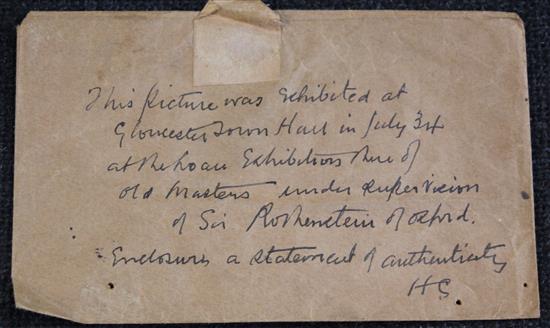 This picture was Exhibited at
Gloucester Town Hall in July 34
at the Loan Exhibition there of
Old Masters under supervision
of Sir Rothenstein of Oxford.
Enclosures a statement of authenticity
HG